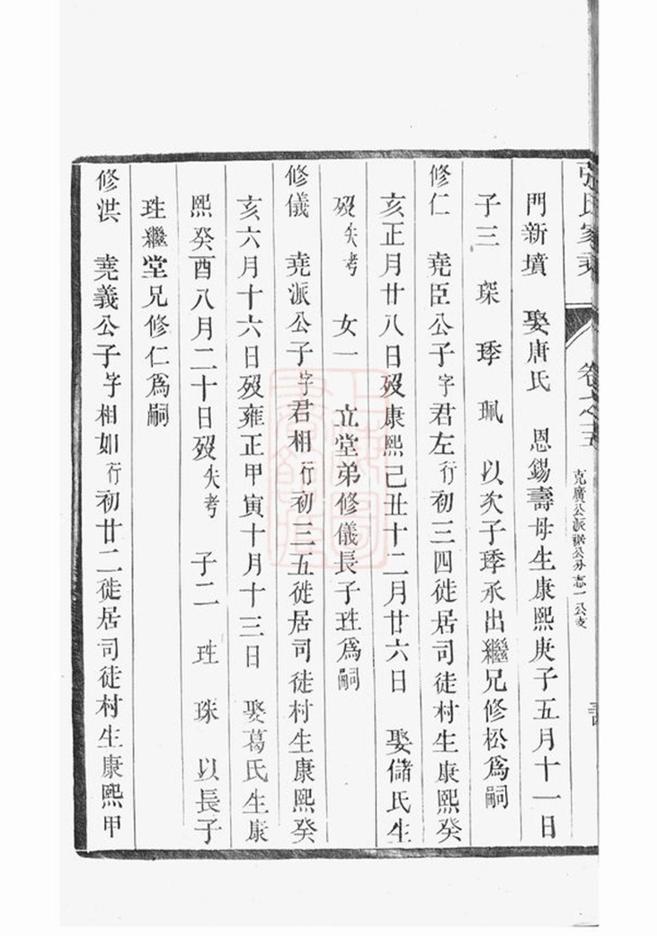 張氏家乘 卷之五
門新墳 娶唐氏 恩錫壽母生康熙庚子五月十一日
子三 琛 琒 珮 以次子琒承出繼兄修松爲嗣
修仁 堯臣公子字君左行初三四徙居司徒村生康熙癸
亥正月廿八日歿康熙己丑十二月廿六日 娶儲氏生
歿失考 女一 立堂弟修儀長子珄爲嗣
修儀 堯派公子字君相行初三五徙居司徒村生康熙癸
亥六月十六日歿雍正甲寅十月十三日 娶葛氏生康
熙癸酉八月二十日歿失考 子二 珄 珠 以長子
珄繼堂兄修仁爲嗣
修洪 堯義公子字相如行初廿二徙居司徒村生康熙甲